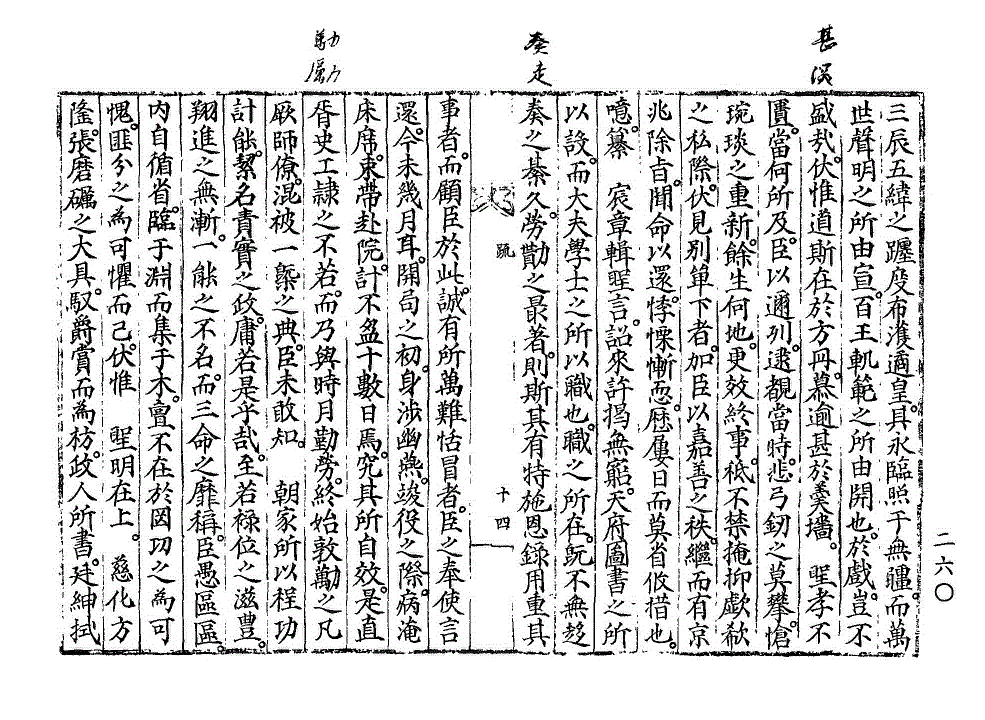 甚深
三辰五緯之躔度布濩適皇具永臨照于無疆而萬
世聲明之所由宣百王軌範之所由開也於戲豈不
盛㢤伏惟道斯在於方冊慕逾甚於羹墻聖孝不
匱當何所及臣以邇列逖覩當時悲弓釰之莫攀愴
琬琰之重新餘生何地更效終事秪不禁掩抑歔欷
之私際伏見別單下者加臣以嘉善之秩繼而有京
兆除旨聞命以還悸慄慚恧歷屢日而莫省攸措也
噫纂宸章輯聖言詔來許揭無窮天府圖書之所
以設而大夫學士之所以職也職之所在旣不無趍
奏走
奏之綦久勞勩之最著則斯其有特施恩錄用重其
疏
十四
事者而顧臣於此誠有所萬難恬冒者臣之奉使言
還今未幾月耳開局之初身涉幽燕竣役之際病淹
床席束帶赴院計不盈十數日焉究其所自效是直
勵力
胥史工隷之不若而乃與時月勤勞終始敦勵之凡
厥師僚混被一槩之典臣未敢知朝家所以程功
計能絜名責實之政庸若是乎哉至若祿位之滋豊
翔進之無漸一能之不名而三命之靡稱臣愚區區
內自循省臨于淵而集于木會不在於因功之為可
愧匪分之為可懼而已伏惟聖明在上慈化方
隆張磨礪之大具馭爵賞而為枋政人所書廷紳拭
二六〇